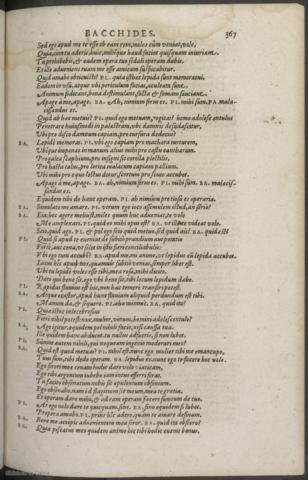 BACCHIDES. 367
Sed ego apud me te esse ob eam rem, miles cùm veniat, volo,
Quia, cùm tu aderis, huic, mihíque haud faciet quisquam iniuriam.
Tu prohibebis, & eadem opera tuo sodali operam dabis.
Et ille adveniens tuam me esse amicam suspicabitur.
Quid amabo obticuisti? PI. quia isthæc lepida sunt memoratui.
Eadem in usu, atque ubi periculum facias, aculeata sunt.
Animum fodicant, bona destimulant, facta & famam sauciant.
PI. mihi sum. BA. mala-
Quid ab hac metuis? PI. quid ego metuam, rogitas? homo adolescentulus
Penetrare huiusmodi in palæstram, ubi damnis desudascitur,
Ubi pro disco damnum capiam, pro cursura dedecus?
BA. Lepidè memoras. PI. ubi ego capiam pro machæra turturem,
Ubíque imponat in manum alius mihi pro cæstu cantharum.
Pro galea scaphium, pro insigni sit corolla plectilis,
Pro hasta talus, pro lorica malacum capiam pallium.
Ubi mihi pro equo lectus detur, scortum pro scuto accubet.
Apage à me, apage. BA. ah, nimium ferus es. PI. mihi sum. BA. malcif-
sandus es.
Equidem tibi do hanc operam. PI. ah nimium pretiosa es operaria.
BA. Simulato me amare. PI. utrùm ego istoc iocón assimulem, an seriò?
BA. Eia hoc agere meliùs, miles quum huc adveniat, te volo
Me amplexari. PI. quid eo mihi opus est? BA. ut ille te videat volo.
Scio, quid ago. PI. & pol ego scio quid metuo. sed quid ais? BA. quid est?
PI. Quid si apud te eveniat de subitò prandium aut potatio
Fortè, aut cœna, ut solet in istis fieri conciliabulis:
Ubi ego tum accubem? BA. apud me mi anime, ut lepidus cũ lepida accubet.
Locus hîc apud nos, quamuis subitò venias, semper liber est.
Ubi tu lepidè voles esse tibi, mea rosa, mihi dicito:
Dato qui bene sit, ego ubi bene sit, tibi locum lepidum dabo.
PI. Rapidus fluuius est hic, non hac temerè transiri potest.
BA. Atque ecastor, apud hunc fluuium aliquid perdundum est tibi.
Manum da, & sequere. PI. aha minimè. BA. quid ita?
PI. Quia istoc inlecebrosius
Fieri nihil potest: nox, mulier, vinum, homini adolescentulo?
BA. Age igitur, equidem pol nihili facio, nisi caussa tua.
Ille quidem hanc abducet. tu nullus adfueris, si non lubet.
PI. Sumne autem nihili, qui nequeam ingenio moderari meo?
BA. Quid est quod metuas? PI. nihil est. nunc ego mulier tibi me emancupo,
Tuus sum, tibi dedo operam. BA. lepidus es. nunc ego te facere hoc volo.
Ego sorori meæ cœnam hodie dare volo viaticam,
Ego tibi argentum iubebo iam intus efferri foras.
Tu facito obsonatum nobis sit opulentum obsonium.
PI. Ego obsonabo. nam id flagitium sit meum, mea te gratia,
Et operam dare mihi, & ad eam operam facere sumtum de tuo.
BA. At ego volo dare te quicquam. PI. sine. BA. sino equidem si lubet.
Propera amabo. PI. priùs hîc adero, quàm te amare desinam.
BA. Bene me accipies advenientem mea soror. BA. quid ita obsecro?
BA. Quia piscatus meo quidem animo hic tibi hodie evenit bonus.